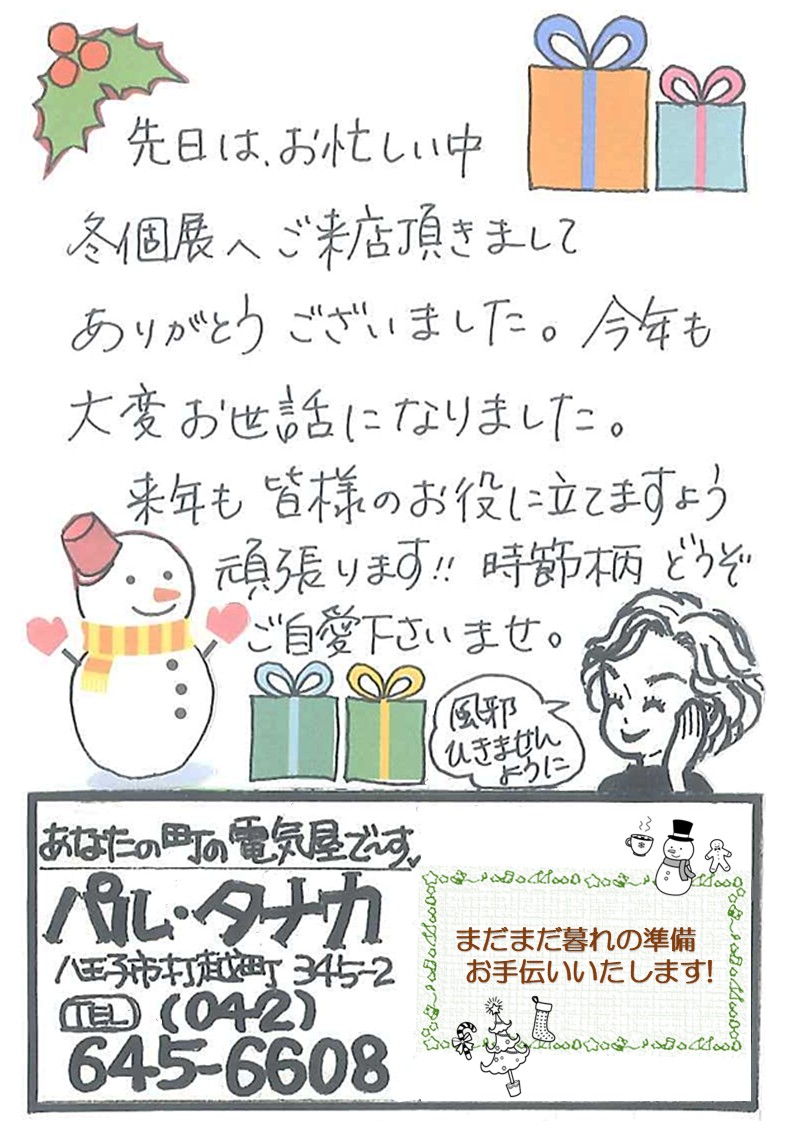 先日は、お忙しい中
冬個展へご来店頂きまして
ありがとうございました。今年も
大変お世話になりました。
来年も皆様のお役に立てますよう
頑張ります!! 時節柄どうぞ
ご自愛下さいませ。
風邪
ひきません
ように
あなたの町の電気屋で〜す♥
パル・タナカ
八王子市打越町345-2
TEL (042)
645-6608
まだまだ暮れの準備
お手伝いいたします!